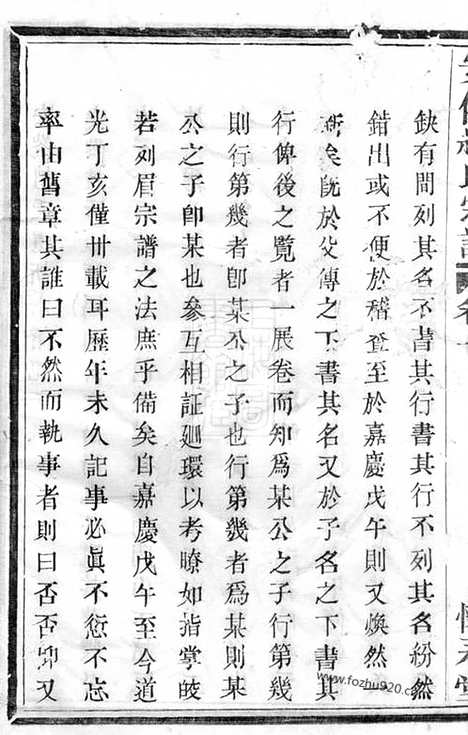 缺有間列其名不書其行書其行不列其名紛然
錯出或不便於稽查至於嘉慶戊午則又煥然
新矣既於父傳之下書其名又於子名之下書其
行俾後之覽者一展卷而知爲某公之子行第幾
則行第幾者卽某公之子也行第幾者爲某則某
公之子卽某也參互相証廻環以考瞭如指掌皎
若列眉宗譜之法庶乎備矣自嘉慶戊午至今道
光丁亥僅卅載耳歷年未久記事必眞不愆不忘
率由舊章其誰曰不然而執事者則曰否否卽又
www.fozhu920.com